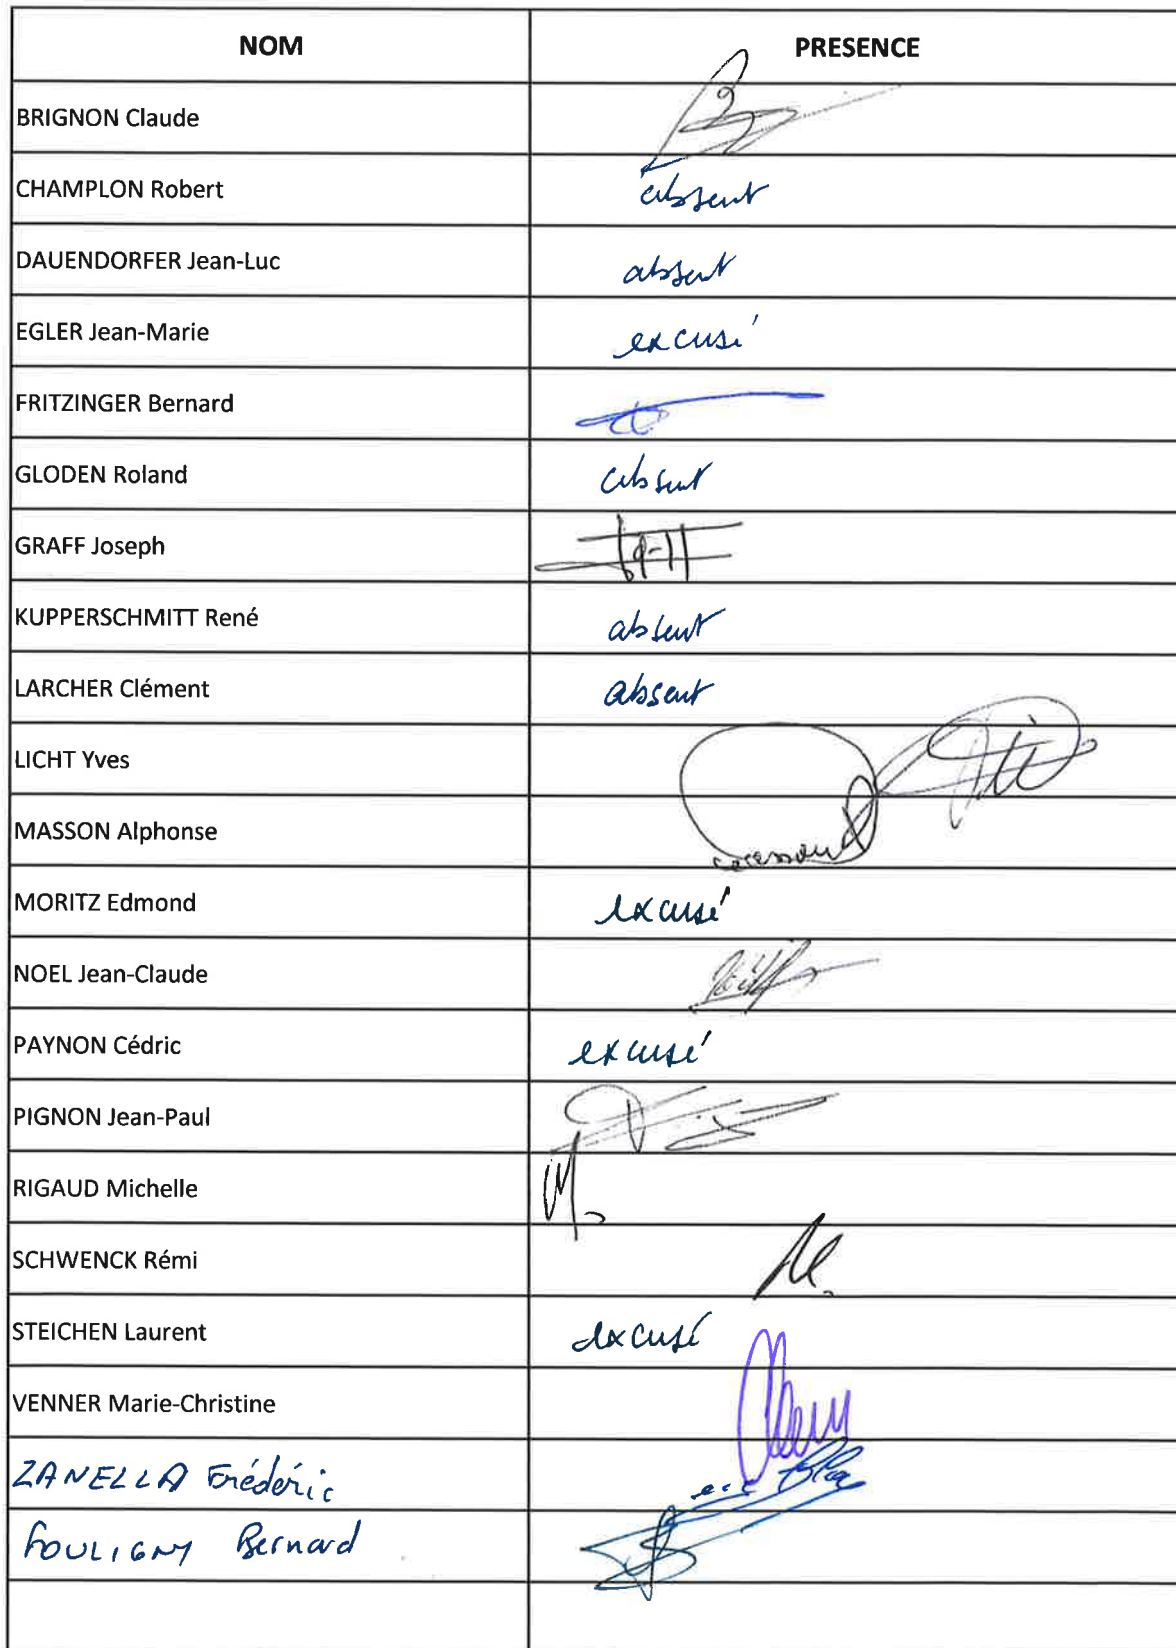 NOM PRESENCE
BRIGNON Claude
CHAMPLON Robert absent
DAUENDORFER Jean-Luc absent
EGLER Jean-Marie excusé
FRITZINGER Bernard
GLODEN Roland absent
GRAFF Joseph
KUPPERSCHMITT René absent
LARCHER Clément absent
LICHT Yves
MASSON Alphonse
MORITZ Edmond excusé
NOEL Jean-Claude
PAYNON Cédric excusé
PIGNON Jean-Paul
RIGAUD Michelle
SCHWENCK Rémi
STEICHEN Laurent excusé
VENNER Marie-Christine
ZANELLA Frédéric
FOULIGNY Bernard